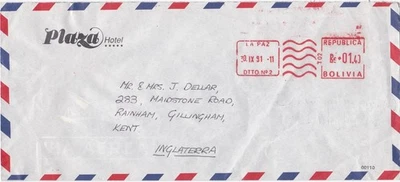 Plaza Hotel
LA PAZ
30 IX 91 -11
DTTO. Nº 2
REPUBLICA
BOLIVIA
MR & MRS. J. DELLAR,
283, MAIDSTONE ROAD,
RAINHAM, GILLINGHAM,
KENT
INGLATERRA
00110